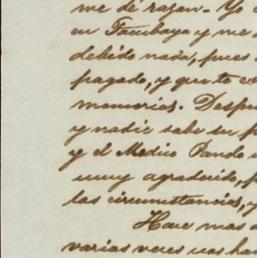 me dé razon. Yo
en Tacubaya y me
debido nada, pues
pagado, y que te co
memorias. Despu
y nadie sabe su p
y el Medico Pando
muy agradecido, p
las circunstancias, y
Hace mas d
varias veces nos han